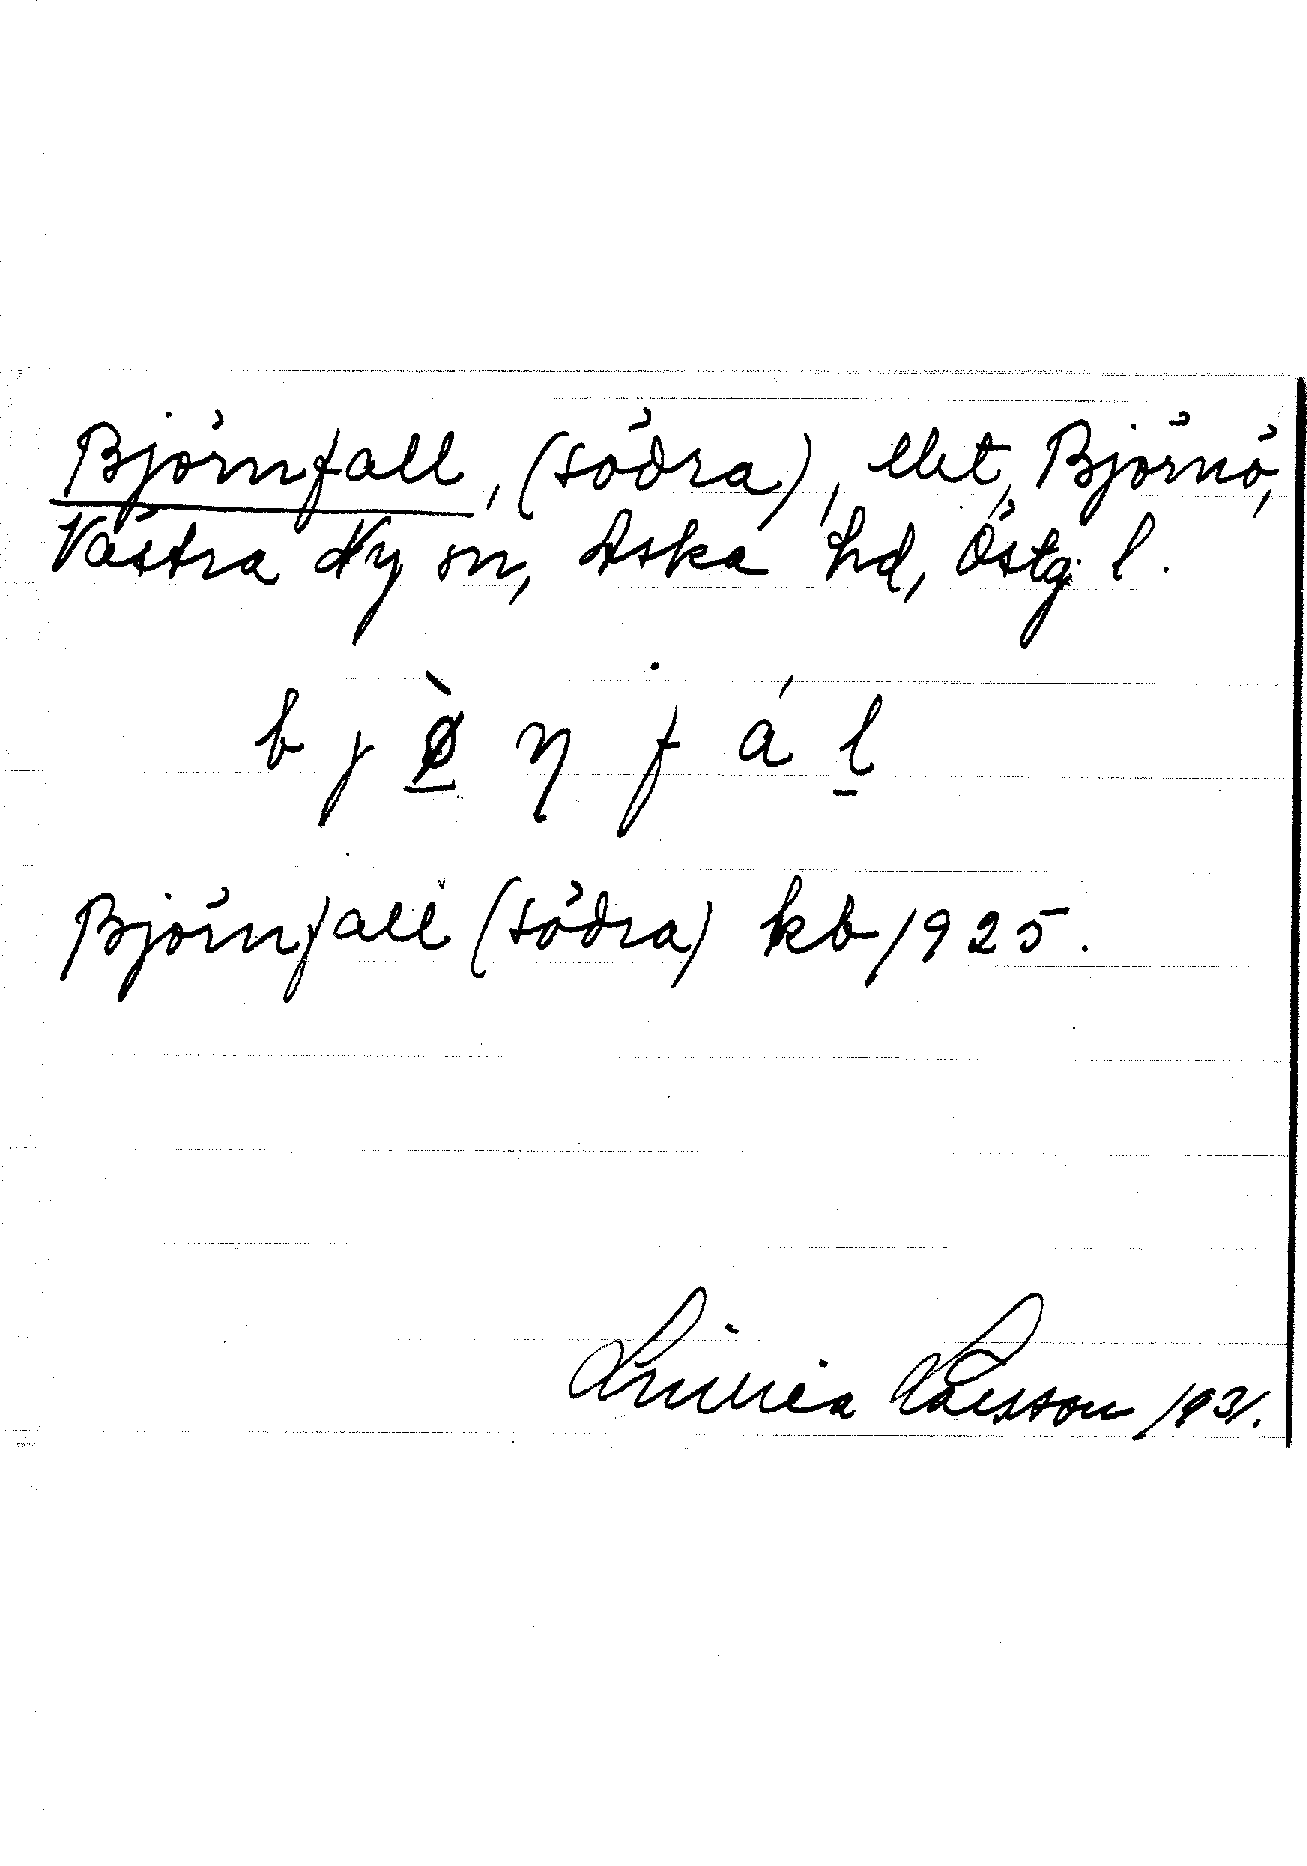 Björnfall, (södra), lht, Björnö,
Västra Ny sn, Aska hd, Östg. l.
b j ø̱̀ n f á l̲
Björnfall (södra) kb 1925.
Linnea Larsson 1931.